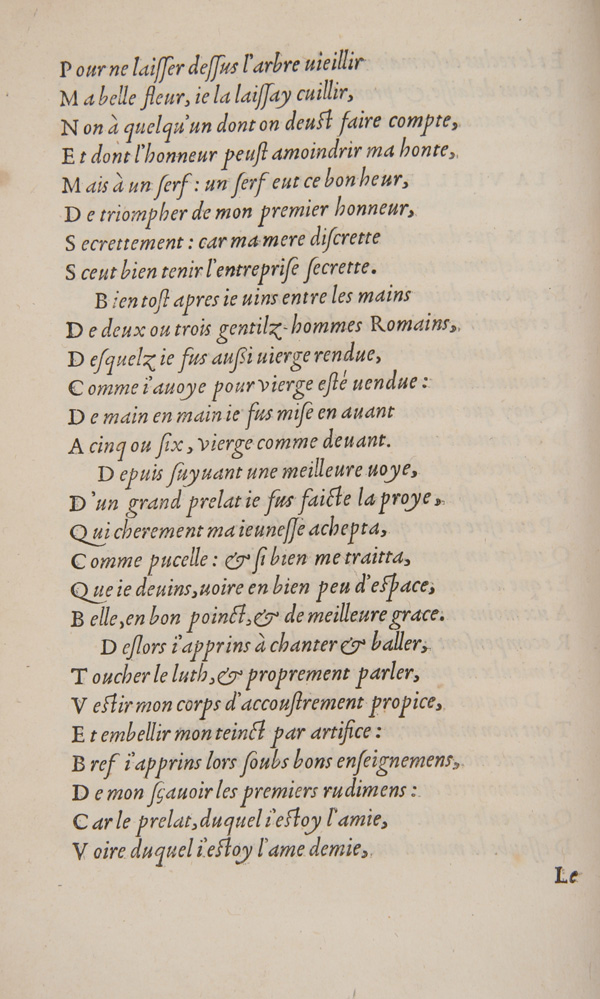 Pour ne laiſſer deſſus l'arbre uieillir
Ma belle fleur, ie la laiſſay cuillir,
Non à quelqu'un dont on deuſt faire compte,
Et dont l'honneur peuſt amoindrir ma honte,
Mais à un ſerf : un ſerf eut ce bon heur,
De triompher de mon premier honneur,
Secrettement : car ma mere diſcrette
Sceut bien tenir l'entrepriſe ſecrette.
Bientoſt apres ie uins entre les mains
De deux ou trois gentilz-hommes Romains,
Deſquelz ie fus auſſi uierge rendue,
Comme i'auoye pour vierge eſté uendue :
De main en main ie fus miſe en auant
A cinq ou ſix, vierge comme deuant.
Depuis ſuyuant une meilleure uoye,
D'un grand prelat ie fus faicte la proye,
Qui cherement ma ieuneſſe achepta,
Comme pucelle : & ſi bien me traitta,
Que ie deuins, uoire en bien peu d'eſpace,
Belle, en bon poinct, & de meilleure grace.
Deſlors i'apprins à chanter & baller,
Toucher le luth, & proprement parler,
Veſtir mon corps d'accouſtrement propice,
Et embellir mon teinct par artifice :
Bref i'apprins lors ſoubs bons enſeignemens,
De mon ſçauoir les premiers rudimens :
Car le prelat, duquel i'eſtoy l'amie,
Voire duquel i'eſtoy l'ame demie,
Le